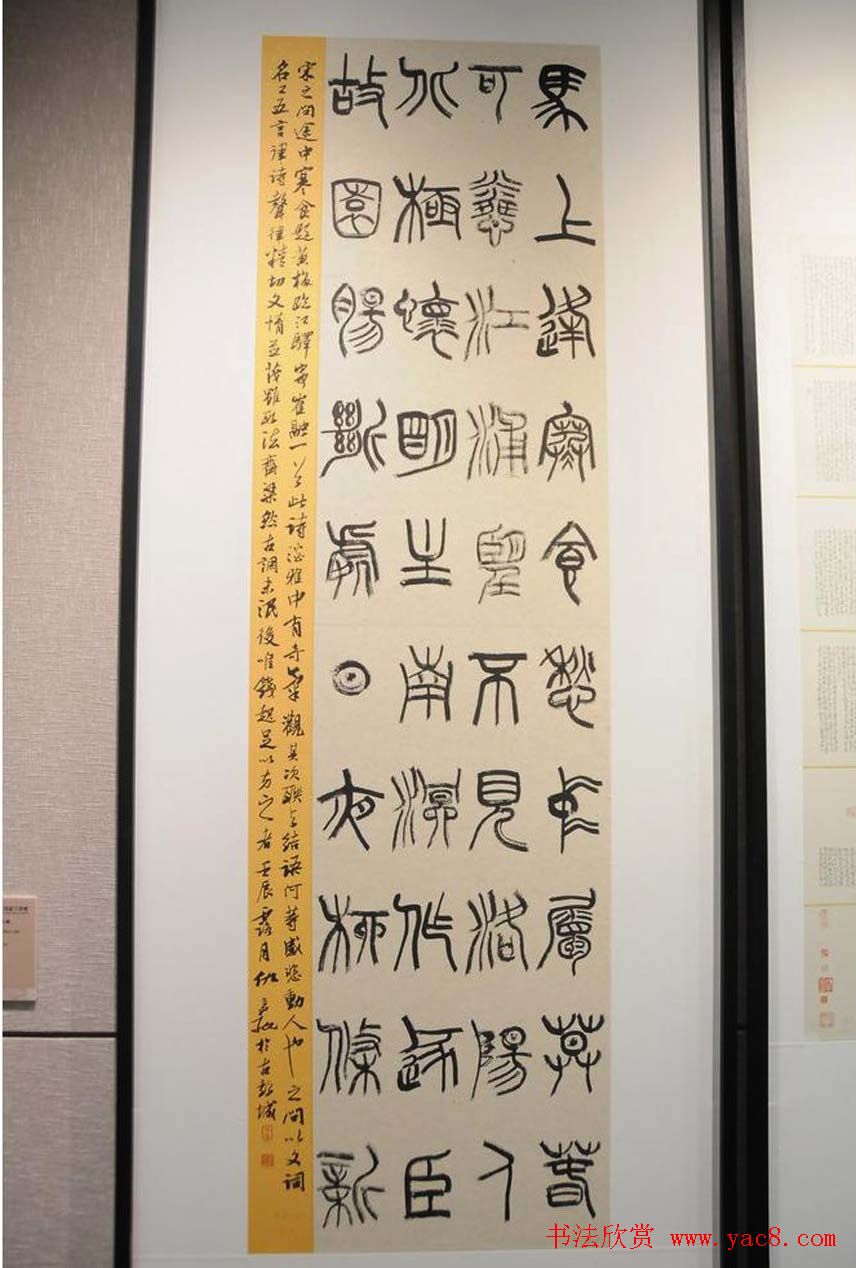 馬上逢寒食愁中屬莫春
可憐江浦望不見洛陽人
北極懷明主南溟作逐臣
故園腸斷處日夜柳條新
宋之問途中寒食題黃梅臨江驛寄崔融一首此詩淡雅中有奇筆觀其次聯与結語何等感動人也之問以文詞
名工五言律詩聲律精切文情並茂雖取法齊梁然古調未泯後唯錢起足以方之者壬辰露月於古彭城
书法欣赏 www.yac8.com